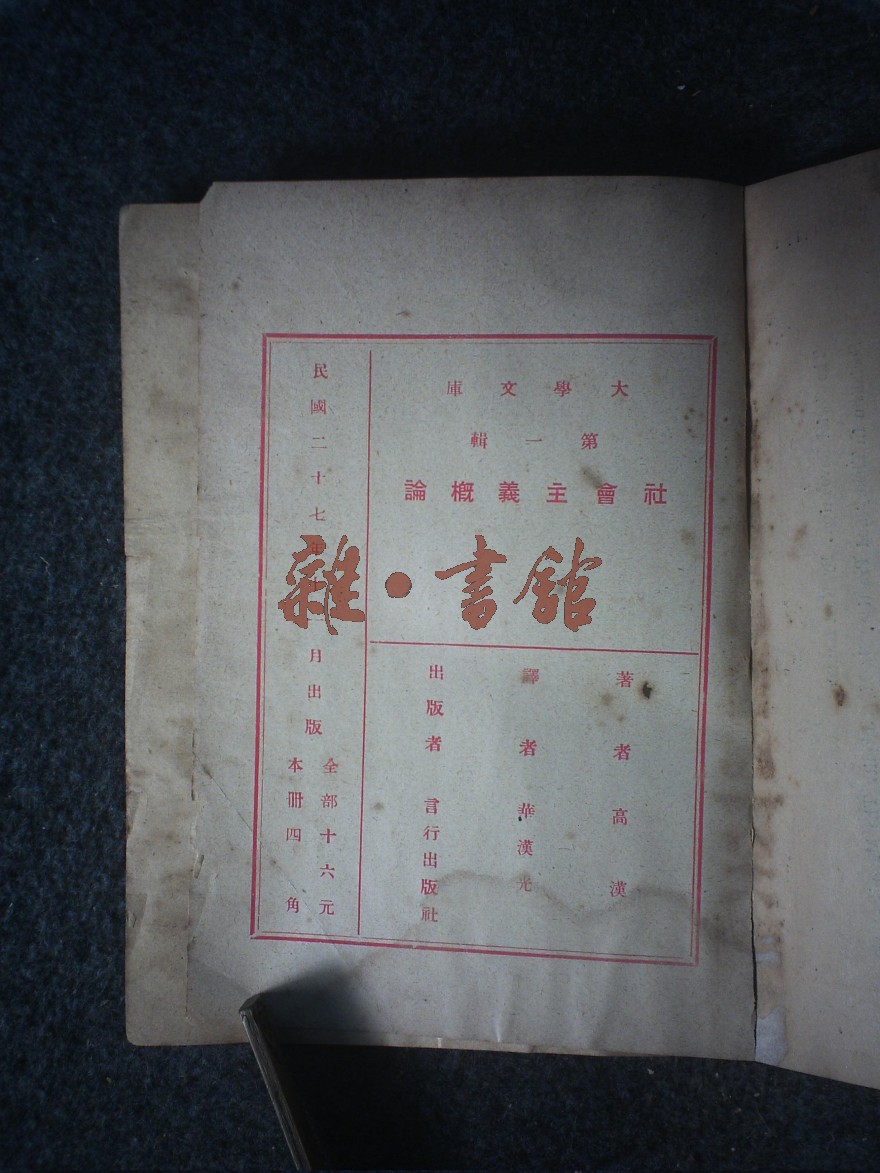 大學文庫
第一輯
社會主義概論
著者 高漢
譯者 華漢光
出版者 言行出版社
民國二十七年 月出版
全部十六元
本冊四角
雜·書館